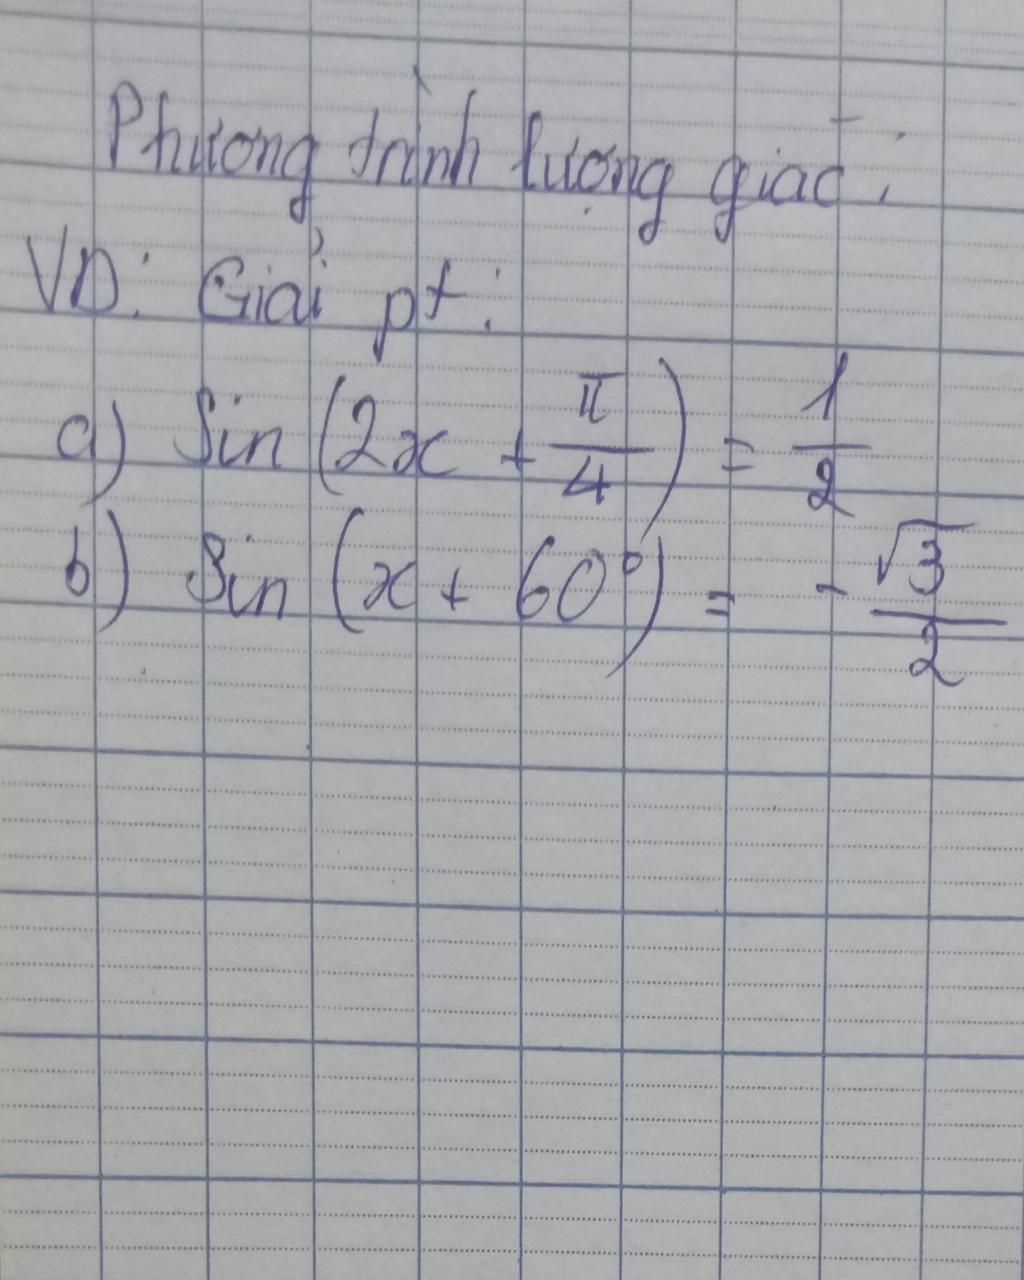 Phương trình lượng giác:
VD: Giải pt:
a) Sin (2x + π/4) = 1/2
b) Sin (x + 60°) = - √3/2